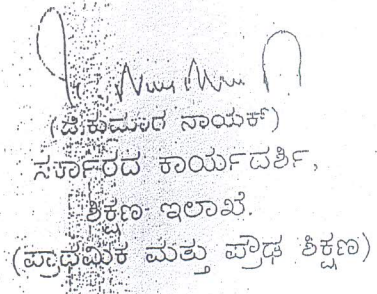 (ಜಿ.ಕುಮಾರ ನಾಯಕ್)
ಸರ್ಕಾರದ ಕಾರ್ಯದರ್ಶಿ,
ಶಿಕ್ಷಣ ಇಲಾಖೆ.
(ಪ್ರಾಥಮಿಕ ಮತ್ತು ಪ್ರೌಢ ಶಿಕ್ಷಣ)